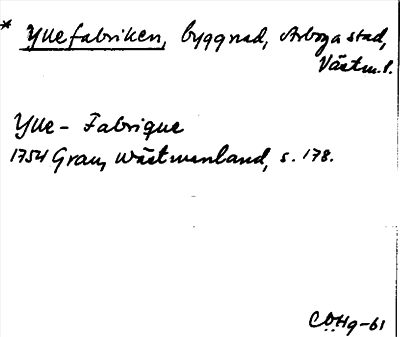 * Yllefabriken, byggnad, Arboga stad,
Västm.l.
Ylle - Fabrique
1754 Grau, Wästmanland, s. 178.
CÖHg-61